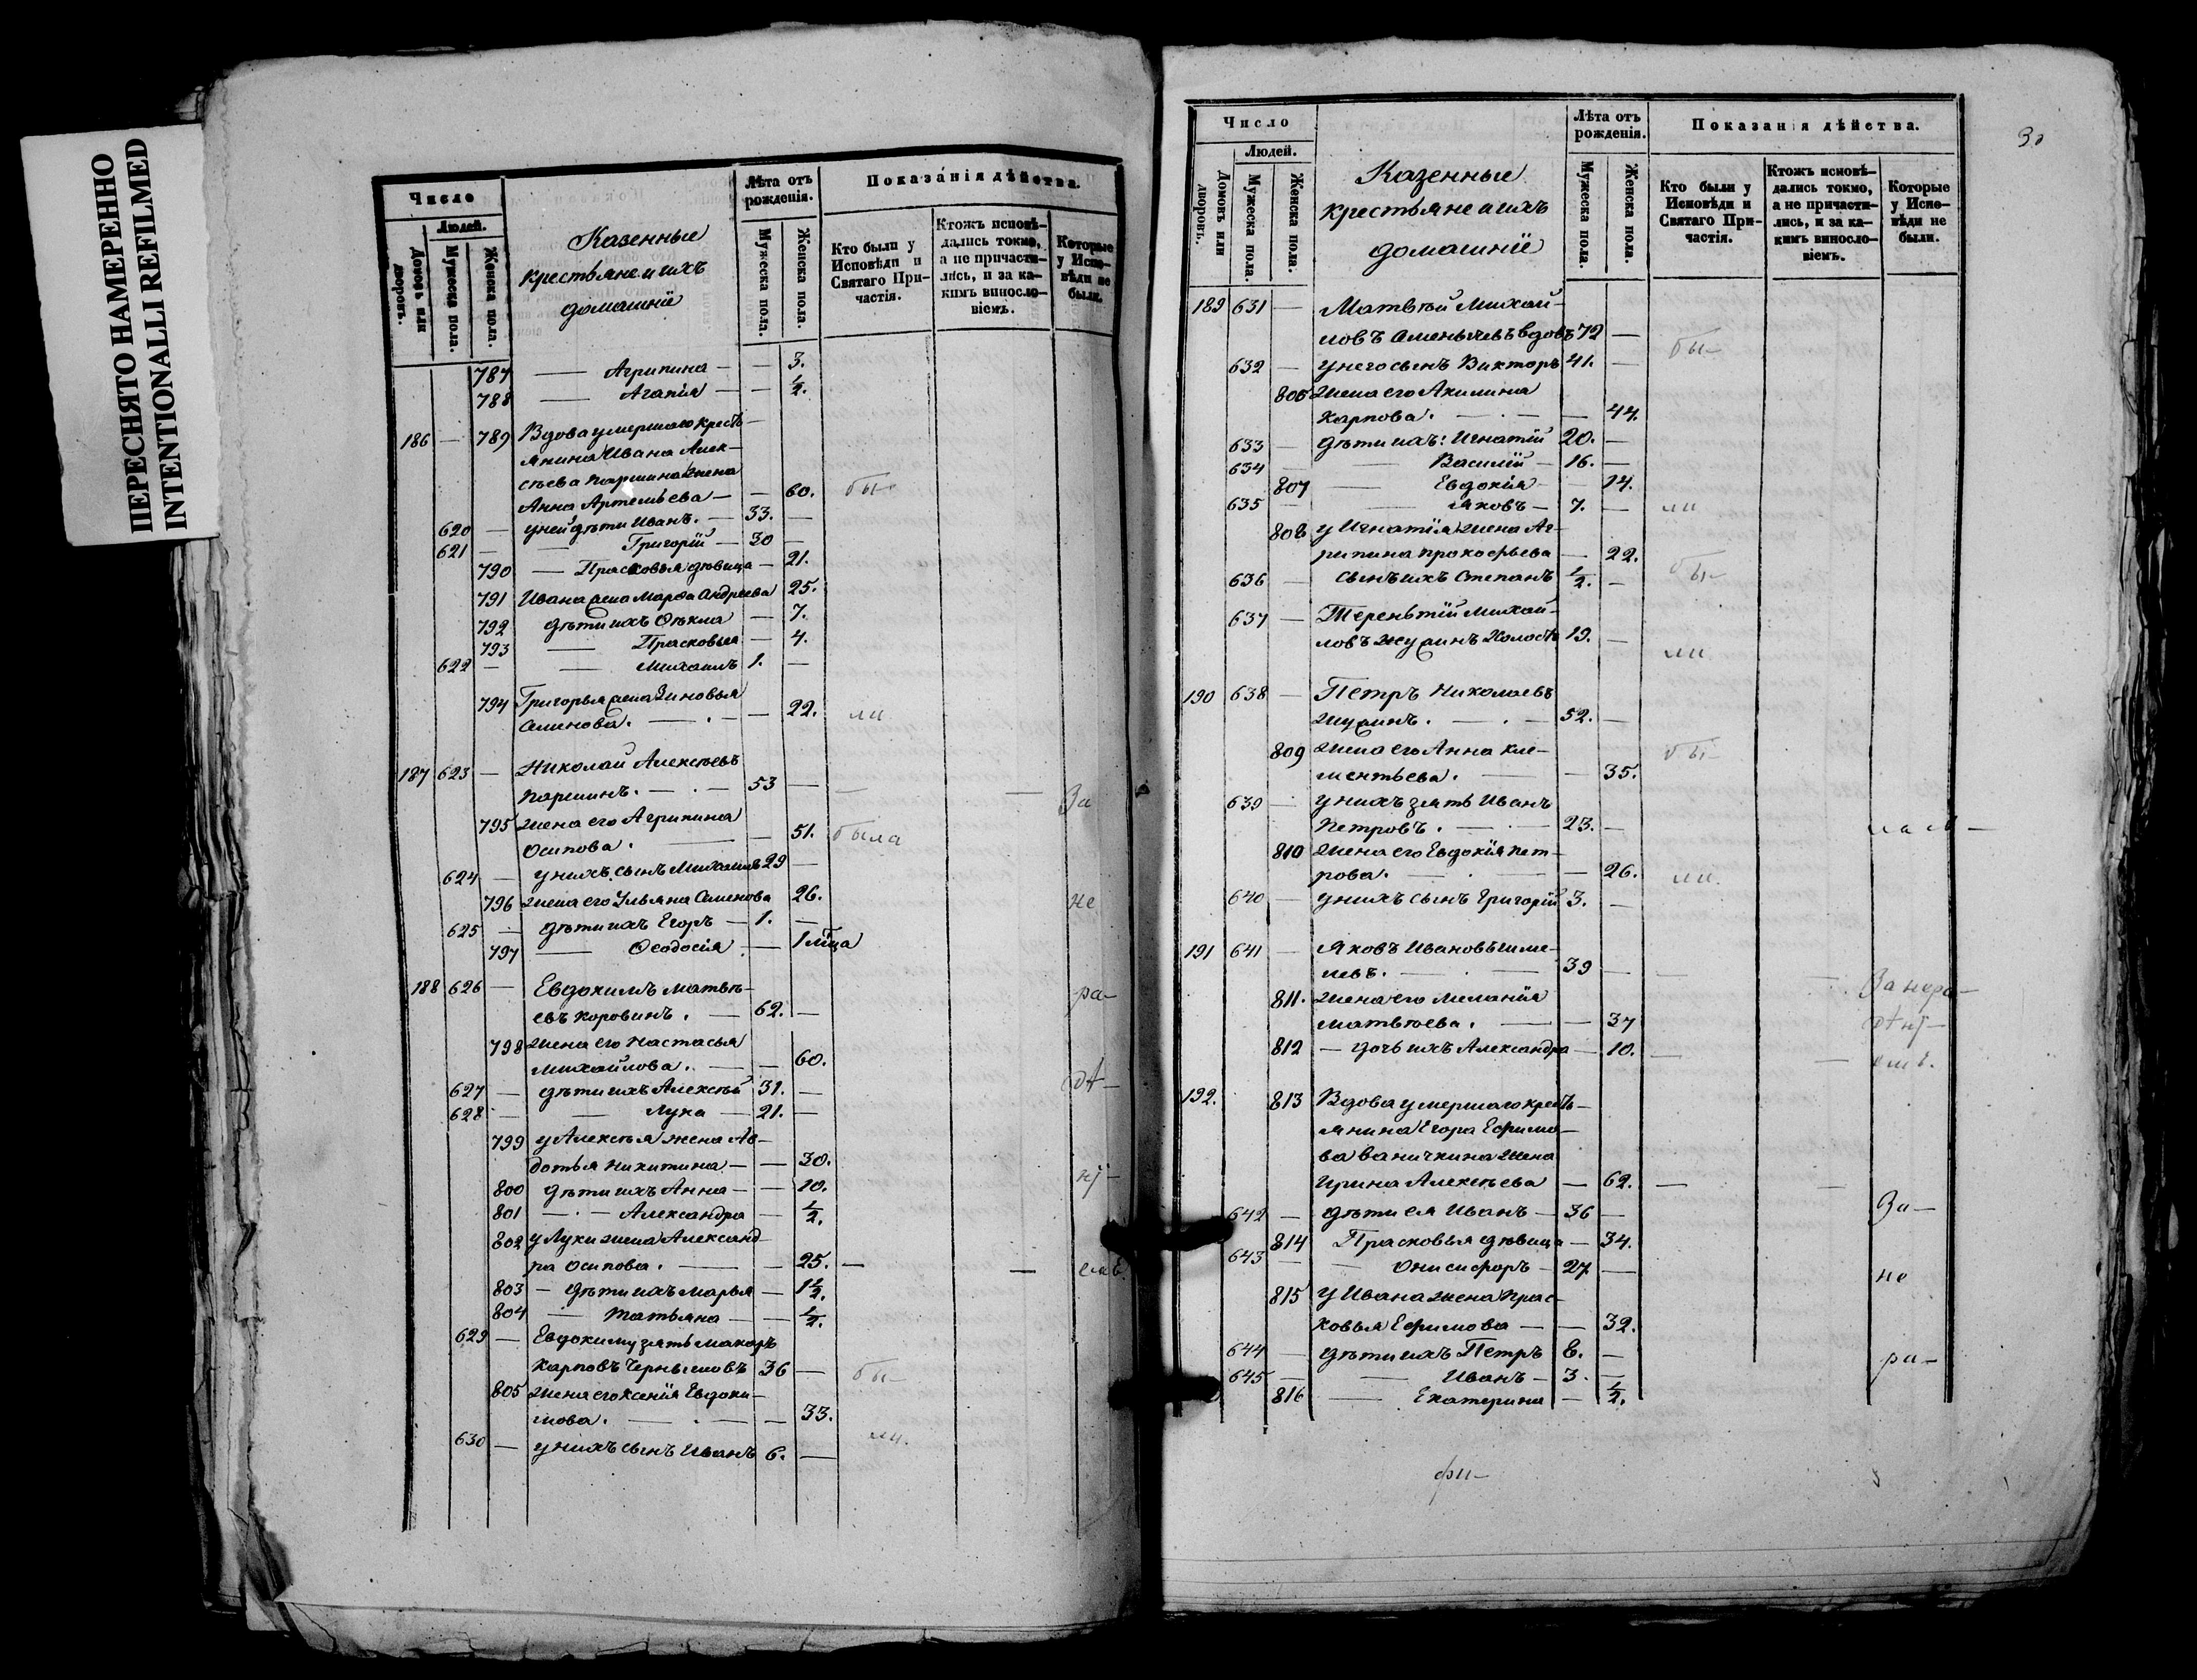 ПЕРЕСНЯТО НАМЕРЕННО
INTENTIONALLI REFILMED
Число
Людей.
Домовъ или дворовъ.
Мужеска пола.
Женска пола.
Казенные
крестьяне и ихъ
домашніе
Лѣта отъ рожденія.
Мужеска пола.
Женска пола.
Показанія дѣйства.
Кто были у Исповѣди и Святаго Причастія.
Ктожъ исповѣ-
дались токмо,
а не причасти-
лись, и за ка-
кимъ виносло-
віемъ.
Которые
у Испо-
вѣди не
были.
787 — Агрипина — — 3.
788 — Агапія — — ½.
186 — 789 Вдова умершаго кресть-
янина Ивана Алек-
сѣева Паршина жена
Анна Артемьева — — 60. бы-
620 — у ней дѣти Иванъ. — 33. —
621 — — Григорій — 30 —
790 — Прасковья дѣвица — 21.
791 Ивана жена Марѳа Андреева 25.
792 дѣти ихъ Ѳекла — 7.
793 — Прасковья — 4.
622 — — Михаилъ 1. —
794 Григорья жена Зиновья
Семенова. — . — — 22. ли
187 623 — Николай Алексѣевъ
Паршинъ. — . — 53 — — — За
795 жена его Агрипина
Осипова. — — 51. была
624 — у нихъ сынъ Михаилъ 29 —
796 жена его Ульяна Семенова 26. не
625 — дѣти ихъ Егоръ — 1. —
797 — Ѳеодосія. — 1 м͞ца
188 626 — Евдокимъ Матвѣ- ра-
евъ Коровинъ. — 62. —
798 жена его Настасья
Михайлова. — — 60.
627 — дѣти ихъ Алексѣй 31. — дѣ-
628 — — Лука — 21. —
799 у Алексѣя жена Ав-
дотья Никитина — — 30.
800 дѣти ихъ Анна — — 10. нї-
801 — . — Александра — ½.
802 у Луки жена Александ-
ра Осипова. — — 25. — — емъ
803 — дѣти ихъ Марья — 1½.
804 — Татьяна — — ½.
629 — Евдокиму зять Макаръ
Карповъ Чернышовъ 36 — бы-
805 жена его Ксенія Евдоки-
мова. — . — — 33.
630 — у нихъ сынъ Иванъ 6. — ли.
30
Число
Людей.
Домовъ или дворовъ.
Мужеска пола.
Женска пола.
Казенные
крестьяне и ихъ
домашніе
Лѣта отъ рожденія.
Мужеска пола.
Женска пола.
Показанія дѣйства.
Кто были у Исповѣди и Святаго Причастія.
Ктожъ исповѣ-
дались токмо,
а не причасти-
лись, и за ка-
кимъ виносло-
віемъ.
Которые
у Испо-
вѣди не
были.
189 631 — Матвѣй Михай-
ловъ вдовъ 72 — бы-
632 — у него сынъ Викторъ 41. —
806 жена его Акилина
Карпова. — . — — 44.
633 — дѣти ихъ: Игнатій 20. —
634 — — Василій — 16. —
807 — Евдокія — — 14.
635 — — Яковъ — 7. — ли
808 у Игнатія жена Аг-
рипина Прокофьева — 22.
636 — сынъ ихъ Степанъ ½. — бы-
637 — Терентій Михай-
ловъ холостъ 19. — ли
190 638 — Петръ Николаевъ
52. —
809 жена его Анна Кле- бы-
ментьева. — — 35.
639 — у нихъ зять Иванъ
Петровъ. — . — 23. —
810 жена его Евдокія Пет-
рова. — . — — 26. ли.
640 — у нихъ сынъ Григорій 3. —
191 641 — Яковъ Ивановъ Шме-
левъ. — . — 39 — — — За нера-
811. жена его Меланія
Матвѣева. — — 37 дѣнї-
812 — дочь ихъ Александра — 10. — — емъ.
192. 813 Вдова умершаго кресть-
янина Егора Ефимо-
ва Ваничкина жена
Ирина Алексѣева — 62. — —
642 — дѣти ея Иванъ — 36 — За-
814 Прасковья дѣвица — 34.
643 — — Онисифоръ — 27 — не
815 у Ивана жена Прас-
ковья Ефимова — — 32.
644 — дѣти ихъ Петръ 8. — ра-
645 — — Иванъ — 3. —
816 — Екатерина — ½.